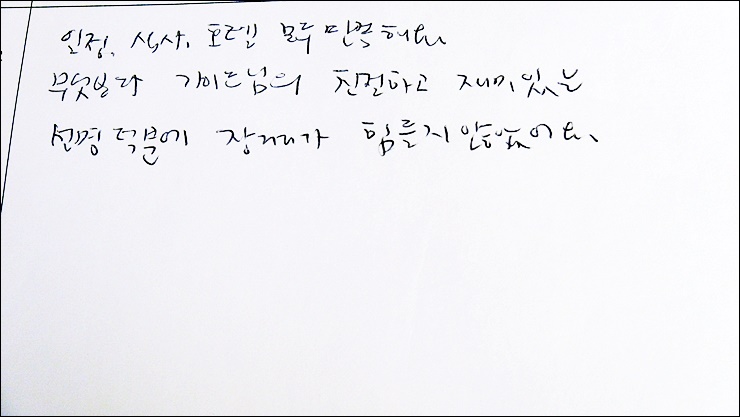 일정, 식사, 호텔 모두 만족해요
무엇보다 가이드님의 친절하고 재미있는
설명 덕분에 장거리가 힘들지 않았어요.